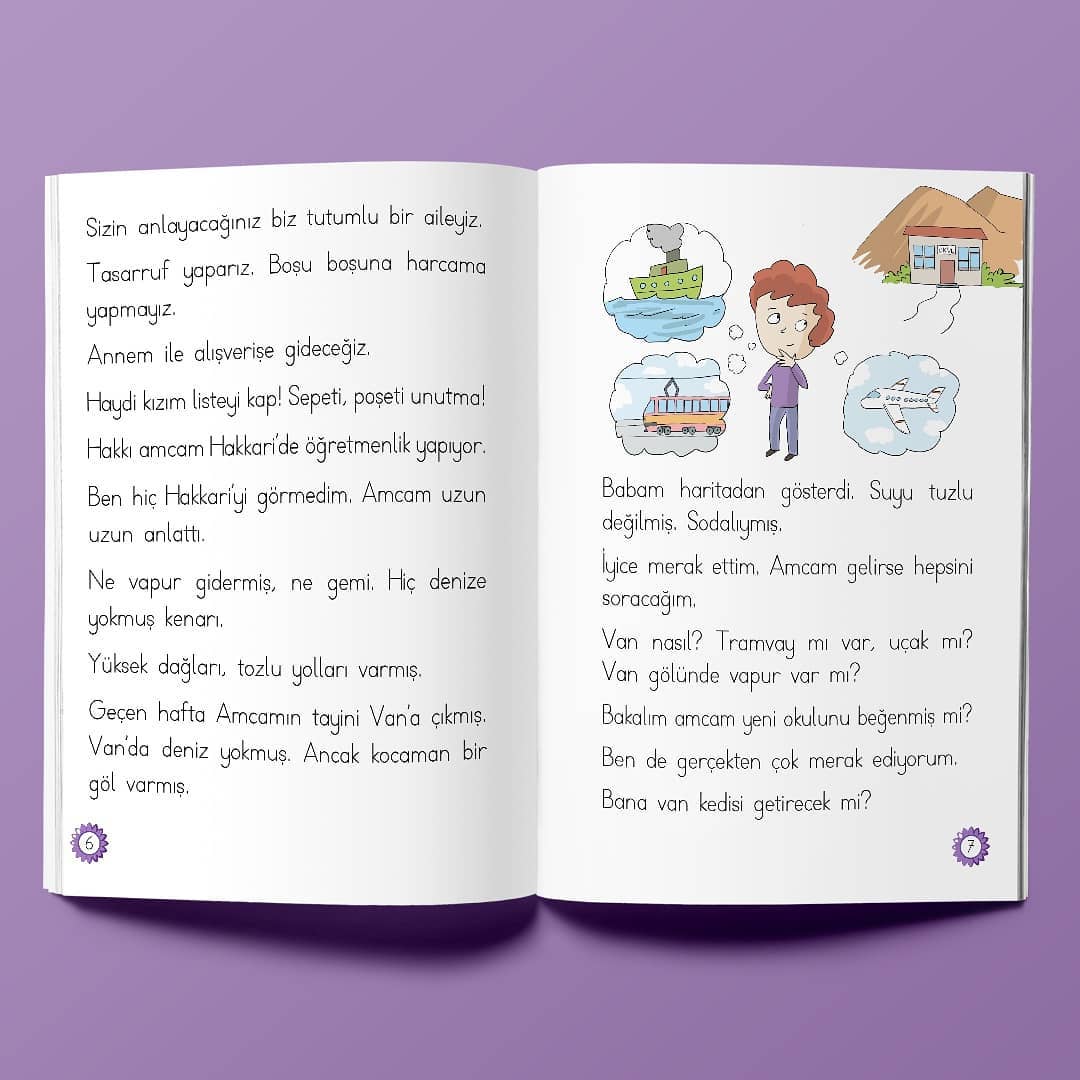 Sizin anlayacağınız biz tutumlu bir aileyiz.
Tasarruf yaparız. Boşu boşuna harcama
yapmayız.
Annem ile alışverişe gideceğiz.
Haydi kızım listeyi kap! Sepeti, poşeti unutma!
Hakkı amcam Hakkari'de öğretmenlik yapıyor.
Ben hiç Hakkari'yi görmedim. Amcam uzun
uzun anlattı.
Ne vapur gidermiş, ne gemi. Hiç denize
yokmuş kenarı.
Yüksek dağları, tozlu yolları varmış.
Geçen hafta Amcamın tayini Van'a çıkmış.
Van'da deniz yokmuş. Ancak kocaman bir
göl varmış.
6
OKUL
Babam haritadan gösterdi. Suyu tuzlu
değilmiş. Sodalıymış.
İyice merak ettim. Amcam gelirse hepsini
soracağım.
Van nasıl? Tramvay mı var, uçak mı?
Van gölünde vapur var mı?
Bakalım amcam yeni okulunu beğenmiş mi?
Ben de gerçekten çok merak ediyorum.
Bana van kedisi getirecek mi?
7